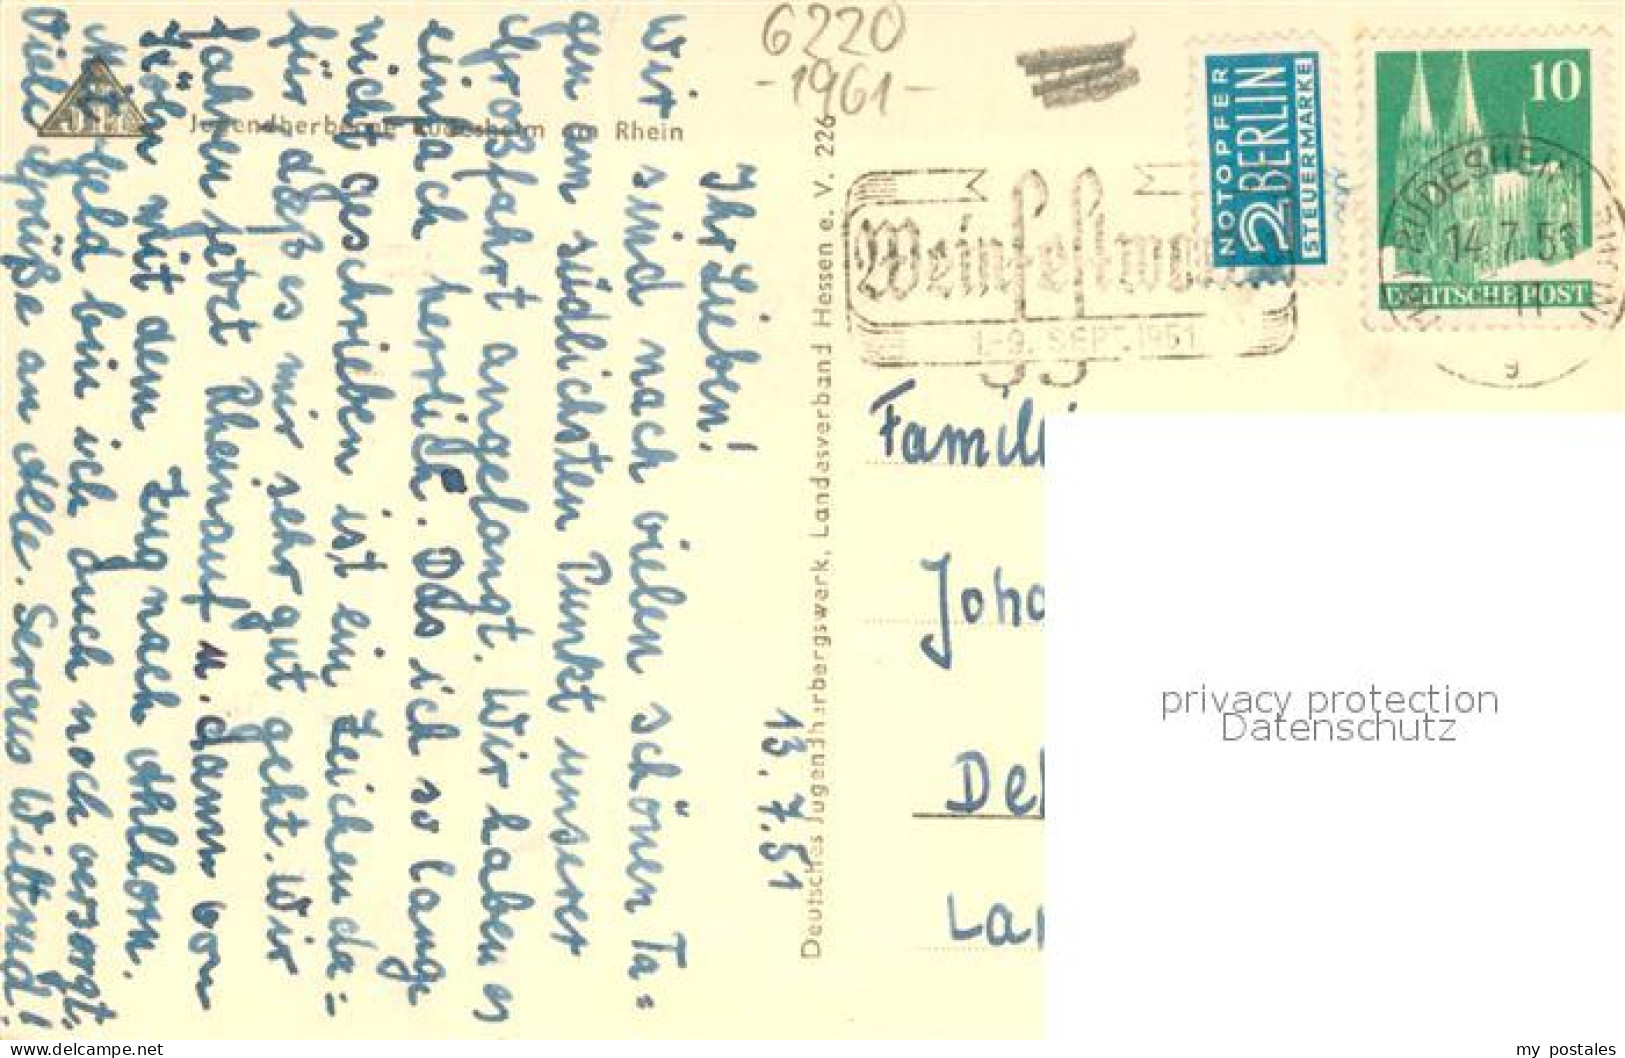 6220
-1961-
NOTOPFER
2 BERLIN
STEUERMARKE
10
DEUTSCHE POST
RÜDESHEIM
14.7.51
Weinfestwo
1.-9. SEPT. 1951
g
Jugendherberge Rüdesheim am Rhein
Deutsches Jugendherbergswerk, Landesverband Hessen e. V. 226
13.7.51
Ihr Lieben!
Wir sind nach vielen schönen Ta=
gen am südlichsten Punkt unserer
Großfahrt angelangt. Wir haben es
einfach herrlich. Das ich so lange
nicht geschrieben ist ein Zeichen da=
für daß es mir sehr gut geht. Wir
fahren jetzt Rheinauf u. dann von
Köln mit dem Zug nach Ahlhorn.
Mit Geld bin ich auch noch versorgt.
Viele Grüße an Alle. Servus Wiltrud!
Famili
Joha
De
La
privacy protection
Datenschutz
my postales